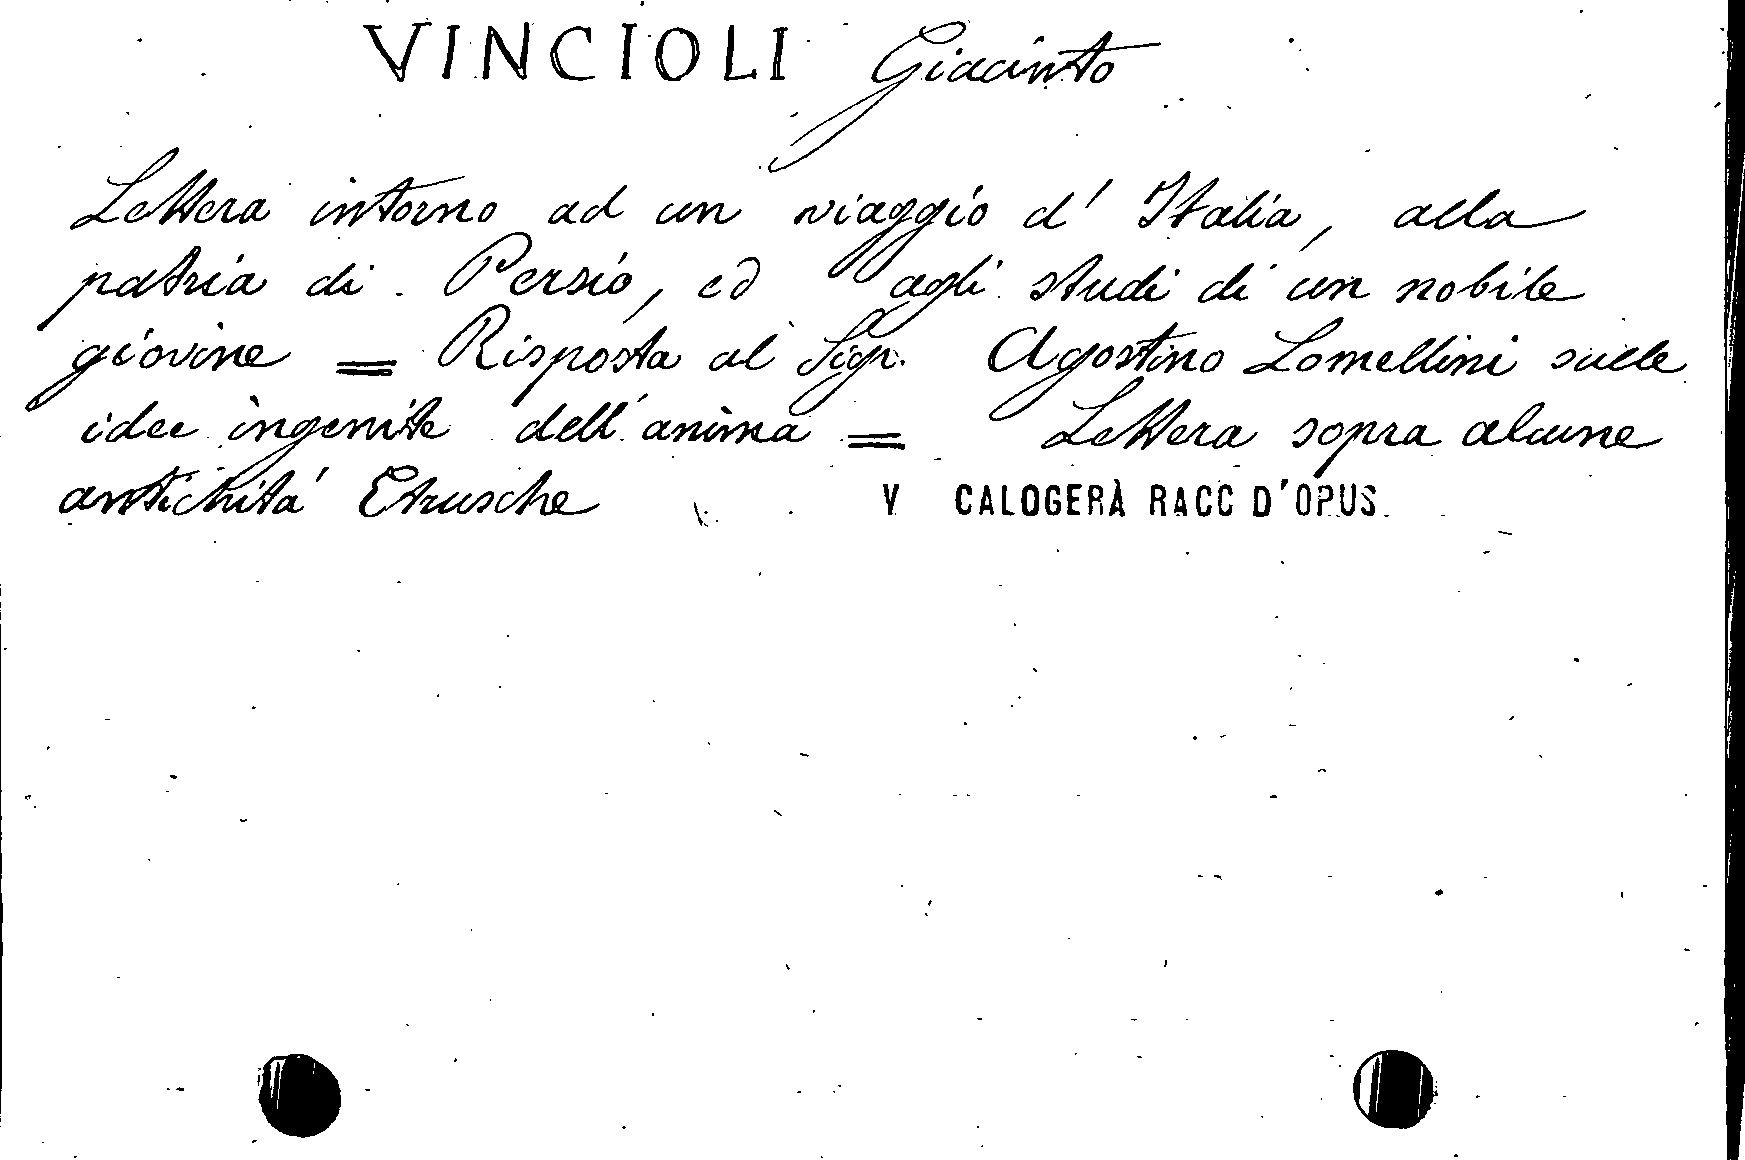 VINCIOLI Giacinto
Lettera intorno ad un viaggio d' Italia, alla
patria di Persio, ed agli studi di un nobile
giovine = Risposta al Sigr. Agostino Lomellini sulle
idee ingenite dell'anima = Lettera sopra alcune
antichità Etrusche V CALOGERÀ RACC D'OPUS.